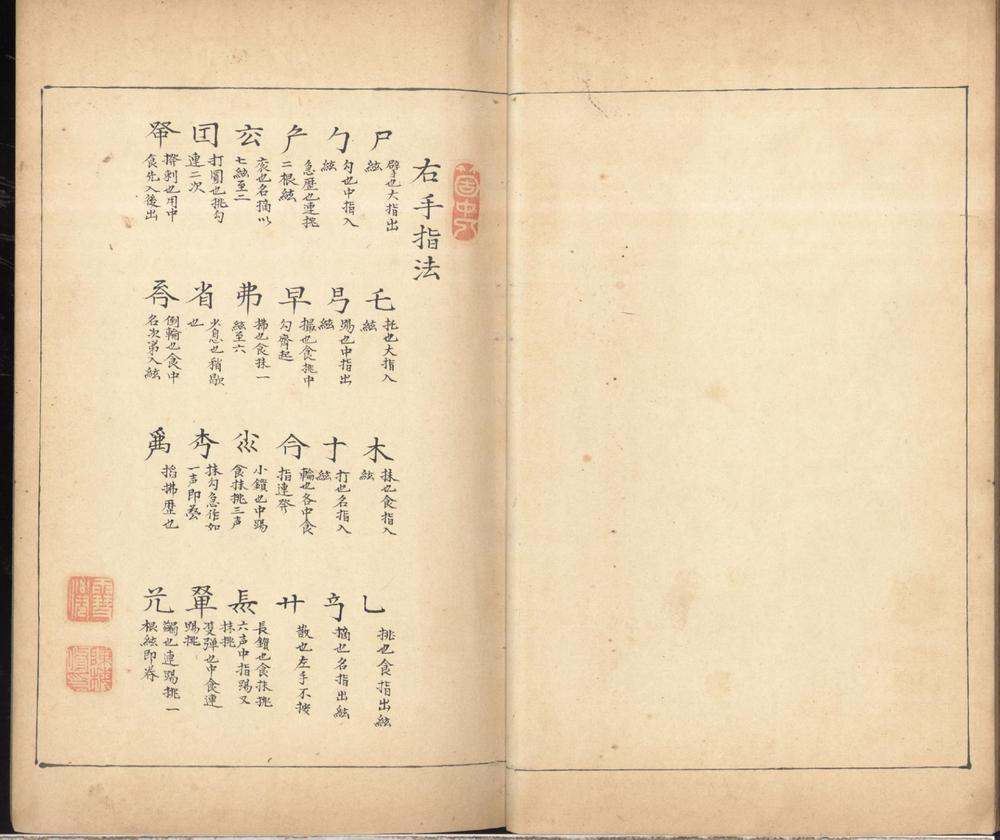 右手指法
尸 擘也大指出
絃
乇 托也大指入
絃
木 抹也食指入
絃
乚 挑也食指出絃
勹 勾也中指入
絃
剔也中指出
絃
十 打也名指入
絃
摘也名指出絃
急歷也連挑
二根絃
早 撮也食挑中
勾齊起
今 輪也各中食
指連發
廾 散也左手不按
厺 衮也名摘以
七絃至二
弗 拂也食抹一
絃至六
小鎖也中踢
食抹挑三声
長鎖也食抹挑
六声中指踢又
抹挑
打圓也挑勾
連二次
省 少息也稍歇
也
抹勾急作如
一声即發
雙彈也中食連
踢挑
擠剌也用中
食先入後出
倒輪也食中
名次第入絃
掐拂歷也
連踢挑一
根絃即